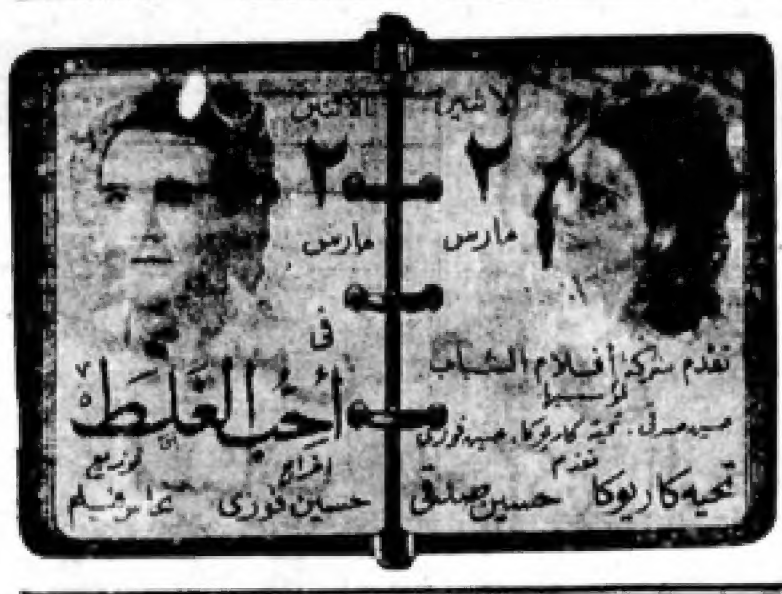 الاثنين
٢
مارس
تقدم شركة أفلام الشباب
لمؤسسيها
حسين صدقى. تحية كاريوكا. حسين فوزى
تقدم
تحيه كاريوكا حسين صدقى
الاثنين
٢
مارس
فى
أحب الغلط
إخراج توزيع
حسين فوزى
فيلم